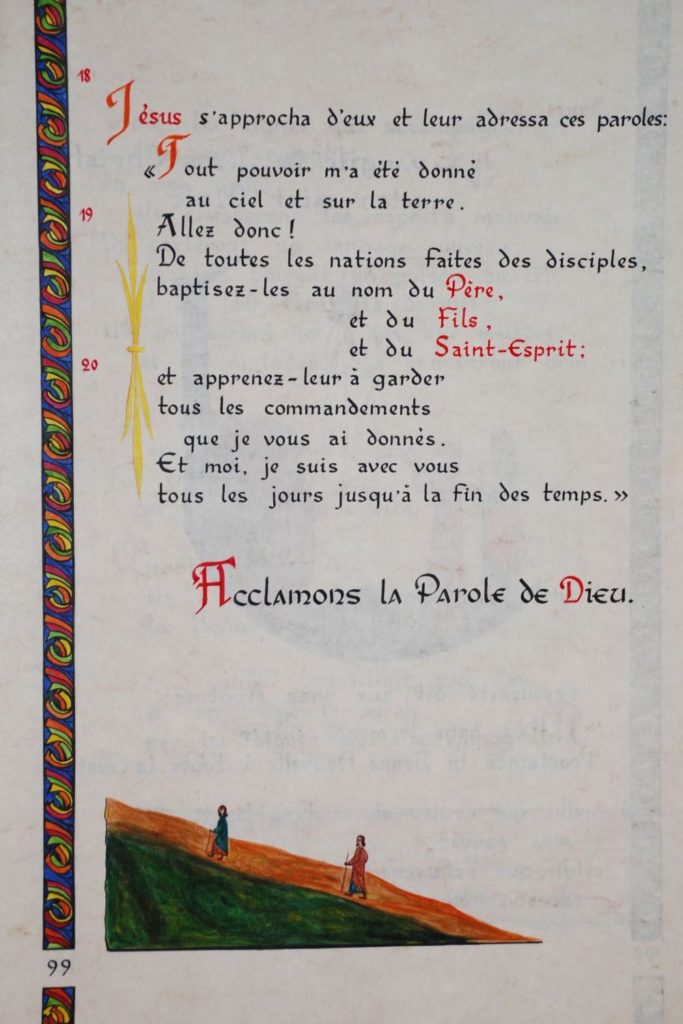 18
Jésus s'approcha d'eux et leur adressa ces paroles:
«Tout pouvoir m'a été donné
au ciel et sur la terre.
19
Allez donc !
De toutes les nations faites des disciples,
baptisez-les au nom du Père,
et du Fils,
et du Saint-Esprit;
20
et apprenez-leur à garder
tous les commandements
que je vous ai donnés.
Et moi, je suis avec vous
tous les jours jusqu'à la fin des temps.»
Acclamons la Parole de Dieu.
99